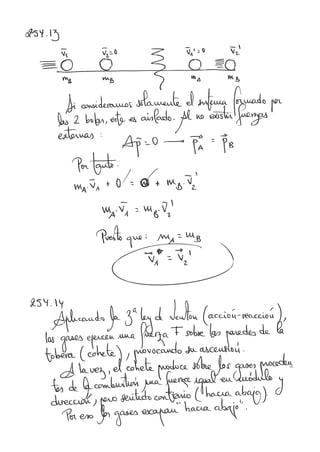 254.13
v⃗₁ v⃗₂=0 v⃗₁'=0 v⃗₂'
m_A m_B m_A m_B
Si consideramos solamente el sistema formado por
las 2 bolas, este es aislado. Al no existir fuerzas
externas:
Δp⃗=0 → p⃗_A = p⃗_B
Por tanto:
m_A·v⃗₁ + 0 = 0 + m_B·v⃗₂'
m_A·v⃗₁ = m_B·v⃗₂'
Puesto que: m_A = m_B
v⃗₁ = v⃗₂'
254.14
Aplicando la 3ª ley de Newton (acción-reacción),
los gases ejercen una fuerza F sobre las paredes de la
tobera (cohete), provocando su ascensión.
A la vez, el cohete produce sobre los gases proceden
tes de la combustión una fuerza igual en módulo y
dirección, pero sentido contrario (hacia abajo).
Por eso los gases escapan "hacia abajo".